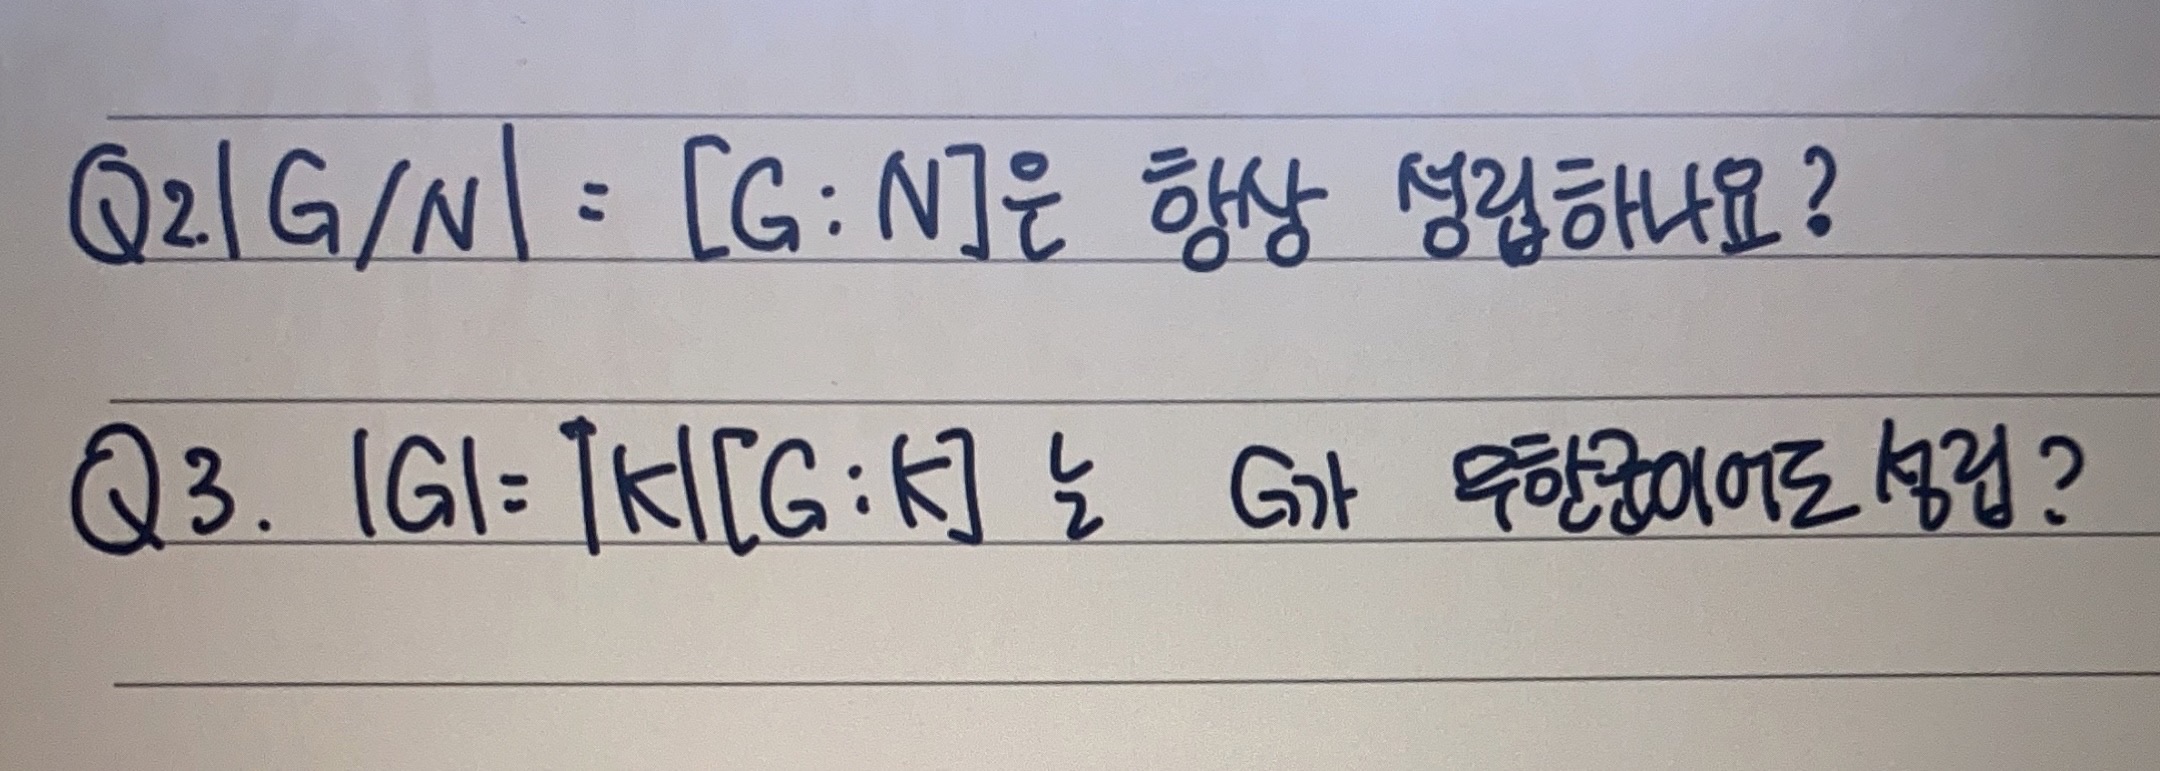 Q2. |G/N| = [G:N]은 항상 성립하나요?
Q3. |G| = |K|[G:K] 는 G가 무한군이어도 성립?